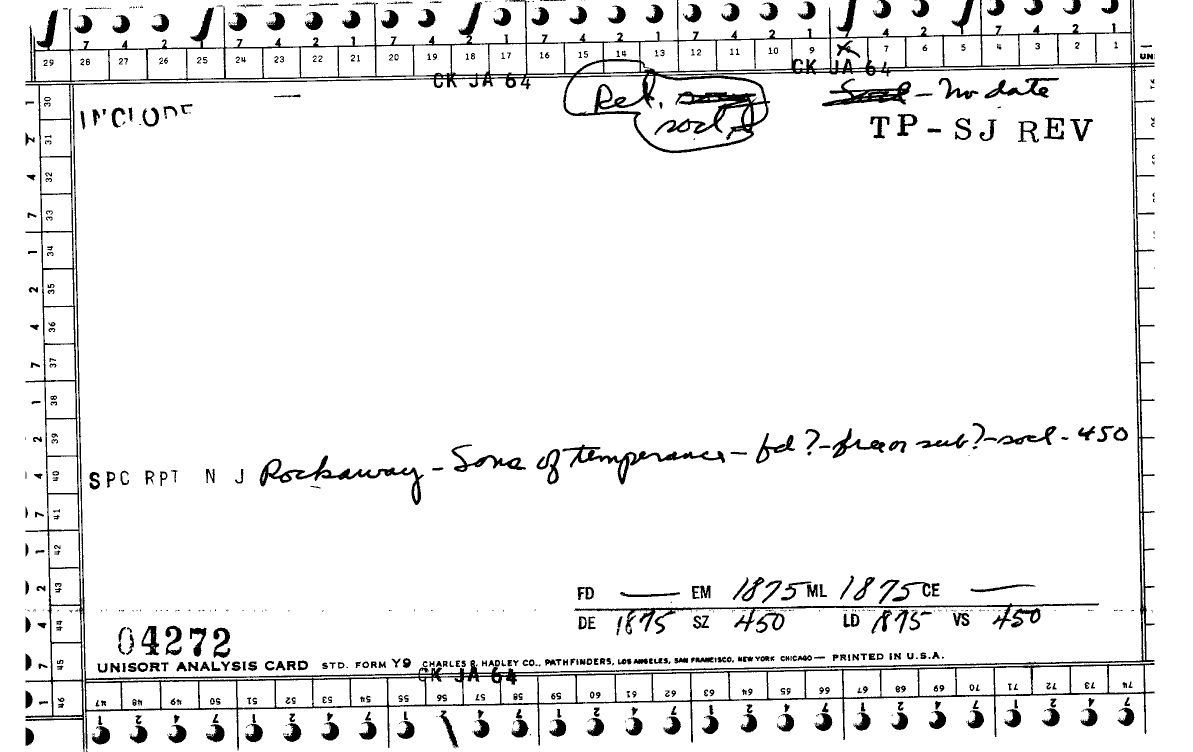 7 4 2 1 7 4 2 1 7 4 2 1 7 4 2 1 7 4 2 1 7 4 2 1 7 4 2 1
29 28 27 26 25 24 23 22 21 20 19 18 17 16 15 14 13 12 11 10 9 7 6 5 4 3 2 1
CK JA 64
CK JA 64
INCLUDE
Rel.
socl
Socl - No date
TP-SJ REV
1 30
2 31
4 32
7 33
1 34
2 35
4 36
7 37
1 38
2 39
4 40
7 41
1 42
2 43
4 44
7 45
1 46
SPC RPT N J Rockaway - Sons of temperance - fd ? - free or sub ? - socl - 450
FD — EM 1875 ML 1875 CE —
DE 1875 SZ 450 LD 1875 VS 450
04272
UNISORT ANALYSIS CARD STD. FORM Y9 CHARLES R. HADLEY CO., PATHFINDERS, LOS ANGELES, SAN FRANCISCO, NEW YORK CHICAGO — PRINTED IN U.S.A.
CK JA 64
47 48 49 50 51 52 53 54 55 56 57 58 59 60 61 62 63 64 65 66 67 68 69 70 71 72 73 74
1 2 4 7 1 2 4 7 1 2 4 7 1 2 4 7 1 2 4 7 1 2 4 7 1 2 4 7